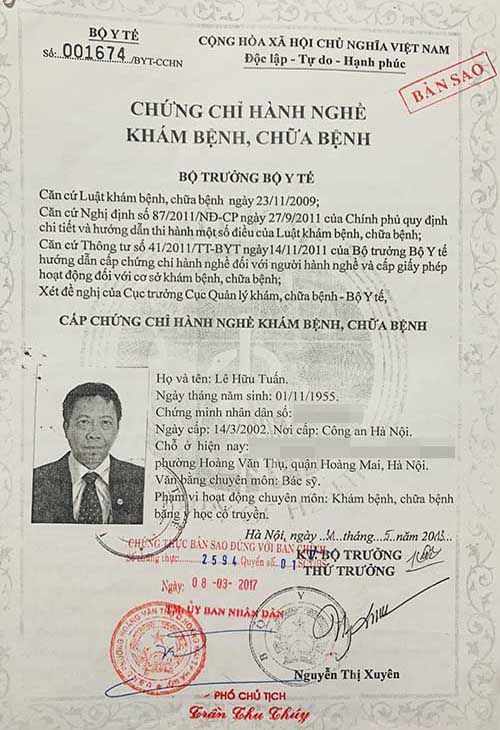 BỘ Y TẾ
Số: 001674 /BYT-CCHN
CỘNG HÒA XÃ HỘI CHỦ NGHĨA VIỆT NAM
Độc lập - Tự do - Hạnh phúc
BẢN SAO
CHỨNG CHỈ HÀNH NGHỀ
KHÁM BỆNH, CHỮA BỆNH
BỘ TRƯỞNG BỘ Y TẾ
Căn cứ Luật khám bệnh, chữa bệnh ngày 23/11/2009;
Căn cứ Nghị định số 87/2011/NĐ-CP ngày 27/9/2011 của Chính phủ quy định
chi tiết và hướng dẫn thi hành một số điều của Luật khám bệnh, chữa bệnh;
Căn cứ Thông tư số 41/2011/TT-BYT ngày 14/11/2011 của Bộ trưởng Bộ Y tế
hướng dẫn cấp chứng chỉ hành nghề đối với người hành nghề và cấp giấy phép
hoạt động đối với cơ sở khám bệnh, chữa bệnh;
Xét đề nghị của Cục trưởng Cục Quản lý khám, chữa bệnh - Bộ Y tế,
CẤP CHỨNG CHỈ HÀNH NGHỀ KHÁM BỆNH, CHỮA BỆNH
Họ và tên: Lê Hữu Tuấn.
Ngày tháng năm sinh: 01/11/1955.
Chứng minh nhân dân số:
Ngày cấp: 14/3/2002. Nơi cấp: Công an Hà Nội.
Chỗ ở hiện nay:
phường Hoàng Văn Thụ, quận Hoàng Mai, Hà Nội.
Văn bằng chuyên môn: Bác sỹ.
Phạm vi hoạt động chuyên môn: Khám bệnh, chữa bệnh
bằng y học cổ truyền.
Hà Nội, ngày tháng 5 năm 2013
CHỨNG THỰC BẢN SAO ĐÚNG VỚI BẢN CHÍNH
Số chứng thực: 2594 Quyển số: 01 SCT/BS
Ngày: 08-03-2017
KT. BỘ TRƯỞNG
THỨ TRƯỞNG
TM. ỦY BAN NHÂN DÂN
Nguyễn Thị Xuyên
PHÓ CHỦ TỊCH
Trần Thu Thúy